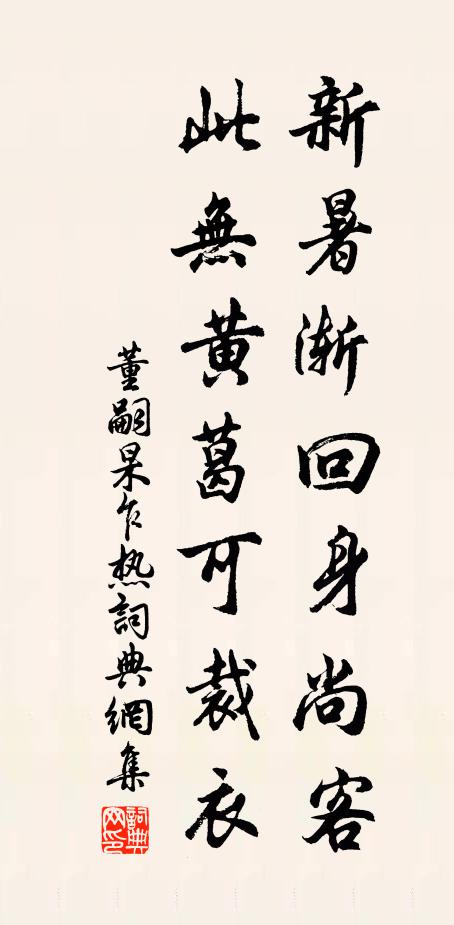 新暑漸回身尚客
此無黄葛可裁衣
董嗣杲乍热詞典網集
詞典
网印